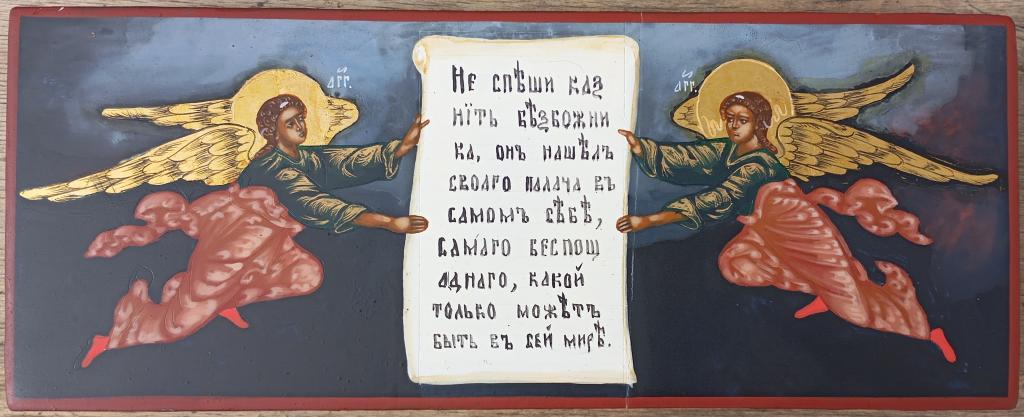 АГГ.
АГГ.
Не спѣши каз
нїть бѣзбожни
ка, онъ нашѣлъ
своаго палача въ
самомъ сѣбѣ,
самаго беспощ
аднаго, какой
только можѣтъ
быть въ сей мирѣ.